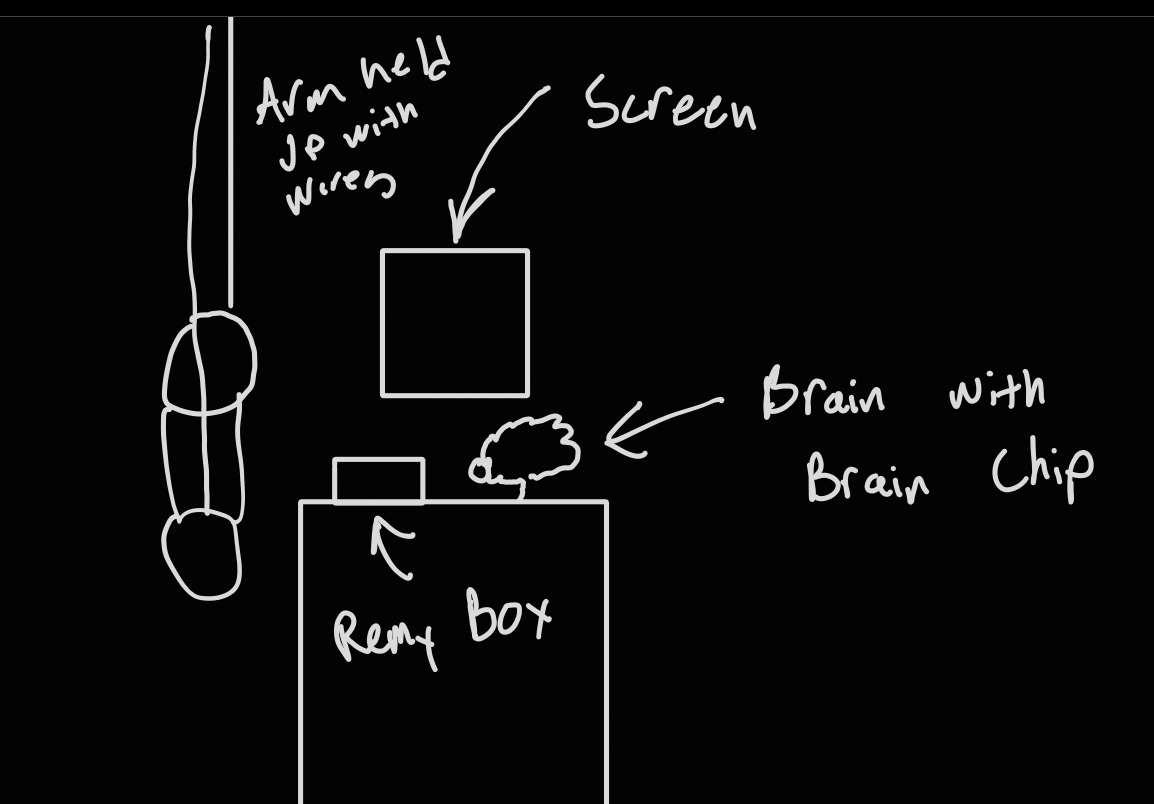 Arm held
up with
wires
Screen
Brain with
Brain Chip
Remy Box